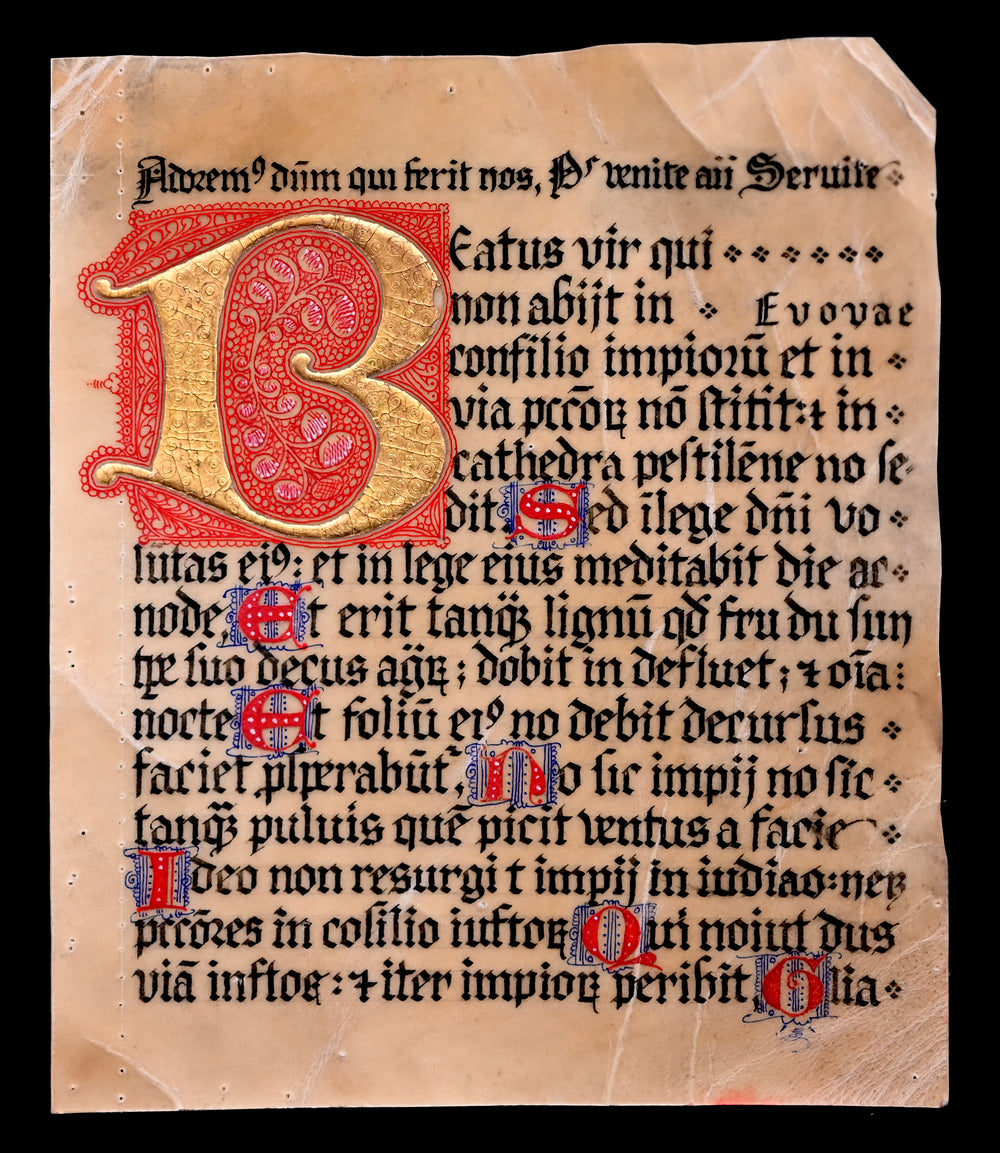 Adorem⁹ dūm qui ferit nos, Pˢ venite aīi Seruite
BEatus vir qui
non abijt in Evovae
consilio impiorū et in
via pccōꝝ nō stitit: ⁊ in
cathedra pestilēne no se-
dit Sed īlege dn̄i vo
lūtas ei⁹: et in lege eius meditabit die ac
node, Et erit tanqȝ̄ lignū qd̄ fru du sun
tꝑe suo decus aq̄ꝝ; dobit in defluet; ⁊ oīa:
nocte Et foliū ei⁹ no debit decursus
faciet ꝓsꝑerabūt, No sic impij no sic
tanqȝ̄ puluis quē picit ventus a facie
Ideo non resurgi t impij in iudiao: neꝝ
pccōres in cosilio iustoꝝ Qui noiut dus
viā inftoꝝ: ⁊ iter impioꝝ peribit Glia